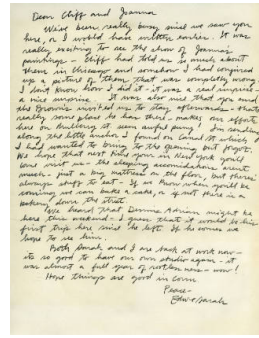 Dear Cliff and Joanna
We've been really busy since we saw you
here, or I would have written sooner. It was
really exciting to see the show of Joanna's
paintings - Cliff had told us so much about
them in Chicago and somehow I had conjured
up a picture of them that was completely wrong.
I don't know how I did it - it was a real surprise -
a nice surprise. It was also nice that you and
the Browns invited us to stay afterwards - that's
really some place to be - makes our efforts
here on building it seem awful puny! I'm sending
along the little anchor I found on Canal St which
I had wanted to bring to the opening but forgot.
We hope that next time you're in New York you'll
come visit us - the sleeping accommodations aren't
much - just a big mattress on the floor, but there's
always stuff to eat - If we know when you'll be
coming we can bake a cake, or if not there is a
bakery down the street.
We heard that Dennis Adrian might be
here this weekend - I guess that it would be his
first trip here since he left. If he comes we
hope to see him.
Both Sarah and I are back at work now -
its so good to have our own studio again - it
was almost a full year of rootless ness - wow!
Hope things are good in
Peace -
Sarah